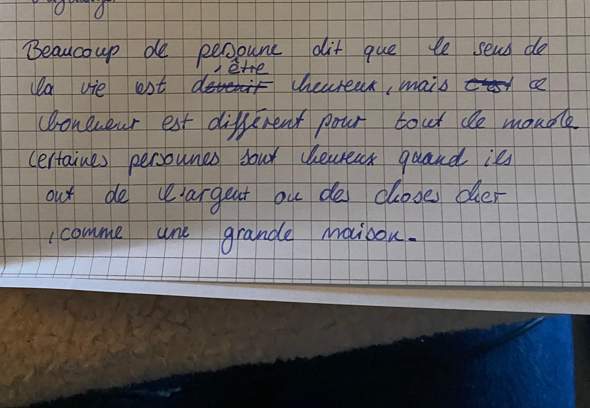 Beaucoup de persoune dit que le sens de
la vie est devenir être heureux, mais c'est ce
bonheur est différent pour tout le monde
certaines personnes sont heureux quand ils
ont de l'argent ou des choses cher
, comme une grande maison.